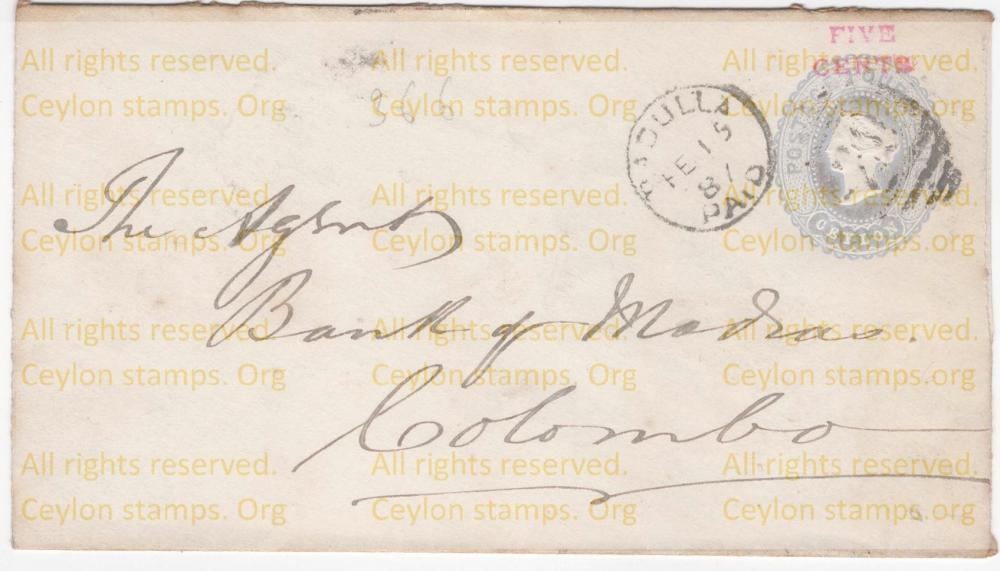 FIVE
CENTS
BADULLA
FE 15
87
PAID
POSTAGE
CEYLON
366
The Agent
Bank of Madras.
Colombo
All rights reserved. All rights reserved. All rights reserved.
Ceylon stamps. Org Ceylon stamps. Org Ceylon stamps. Org
All rights reserved. All rights reserved. All rights reserved.
Ceylon stamps. Org Ceylon stamps. Org Ceylon stamps. Org
All rights reserved. All rights reserved. All rights reserved.
Ceylon stamps. Org Ceylon stamps. Org Ceylon stamps. Org
All rights reserved. All rights reserved. All rights reserved.
Ceylon stamps. Org Ceylon stamps. Org Ceylon stamps. Org